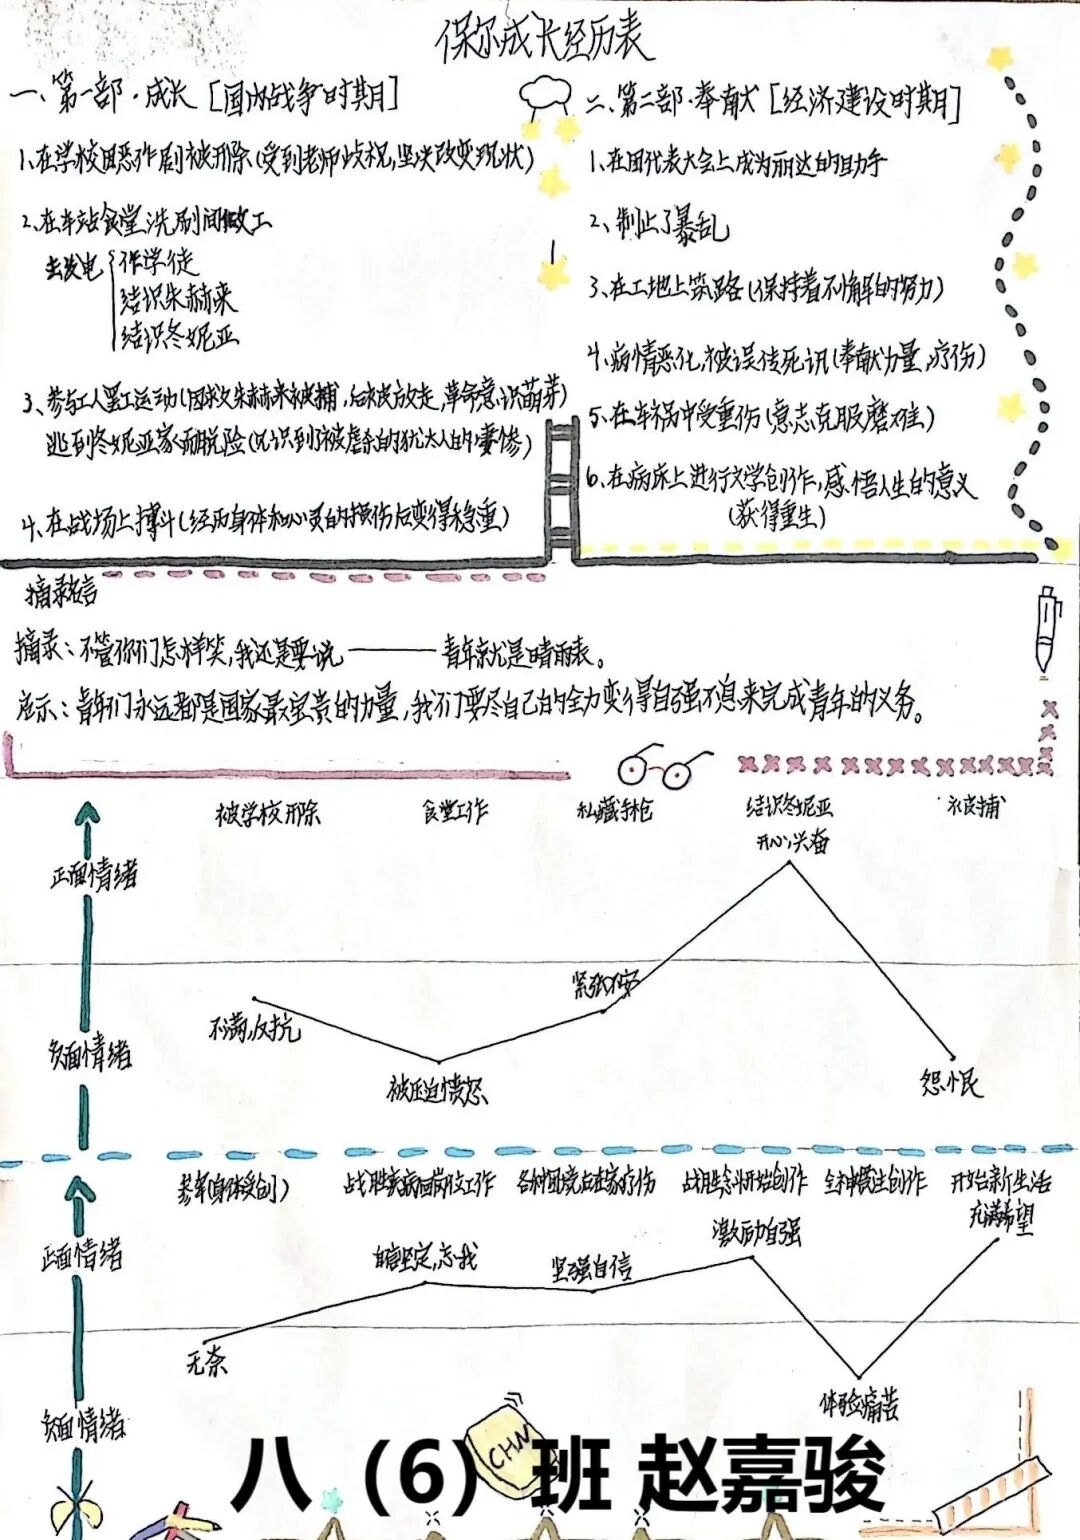 保尔成长经历表
一、第一部·成长［国内战争时期］
1、在学校因恶作剧被开除(受到老师歧视,坚决改变现状)
2、在车站食堂洗刷间做工
去发电
作学徒
结识朱赫来
结识冬妮亚
3、参与工人罢工运动(因救朱赫来被捕,后被放走,革命意识萌芽)
逃到冬妮亚家而脱险(认识到了被虐杀的犹太人的凄惨)
4、在战场上搏斗(经历身体和心灵的损伤后变得稳重)
二、第二部·奉献［经济建设时期］
1、在团代表大会上成为丽达的助手
2、制止了暴乱
3、在工地上筑路(保持着不懈的努力)
4、病情恶化,被误传死讯(奉献力量,疗伤)
5、在车祸中受重伤(意志克服磨难)
6、在病床上进行文学创作,感悟人生的意义
(获得重生)
摘录名言
摘录:不管你们怎样笑,我还是要说———青年就是晴雨表。
启示:青年们永远都是国家最宝贵的力量,我们要尽自己的全力变得自强不息来完成青年的义务。
被学校开除 食堂工作 私藏手枪 结识冬妮亚 被捕
开心,兴奋
正面情绪
紧张不安
不满,反抗
负面情绪
被压迫愤怒 怨恨
参军(身体受创) 战胜疾病回岗位工作 各种困境后在家疗伤 战胜念头开始创作 全神贯注创作 开始新生活
充满希望
激励自强
正面情绪 自信坚定,忘我 坚强自信
无奈
体验痛苦
负面情绪
CHN
八（6）班 赵嘉骏